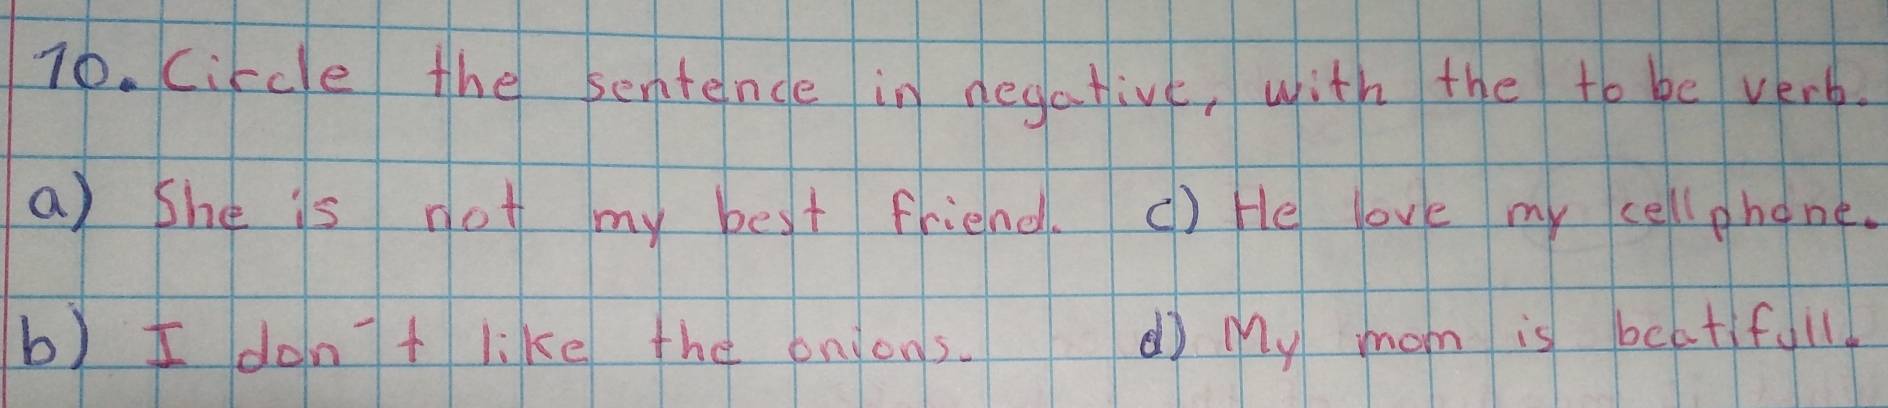 10. Circle the sentence in negative, with the to be verb.
a) She is not my best friend. c) He love my cellphone.
b) I don't like the onions. d) My mom is beatifull.